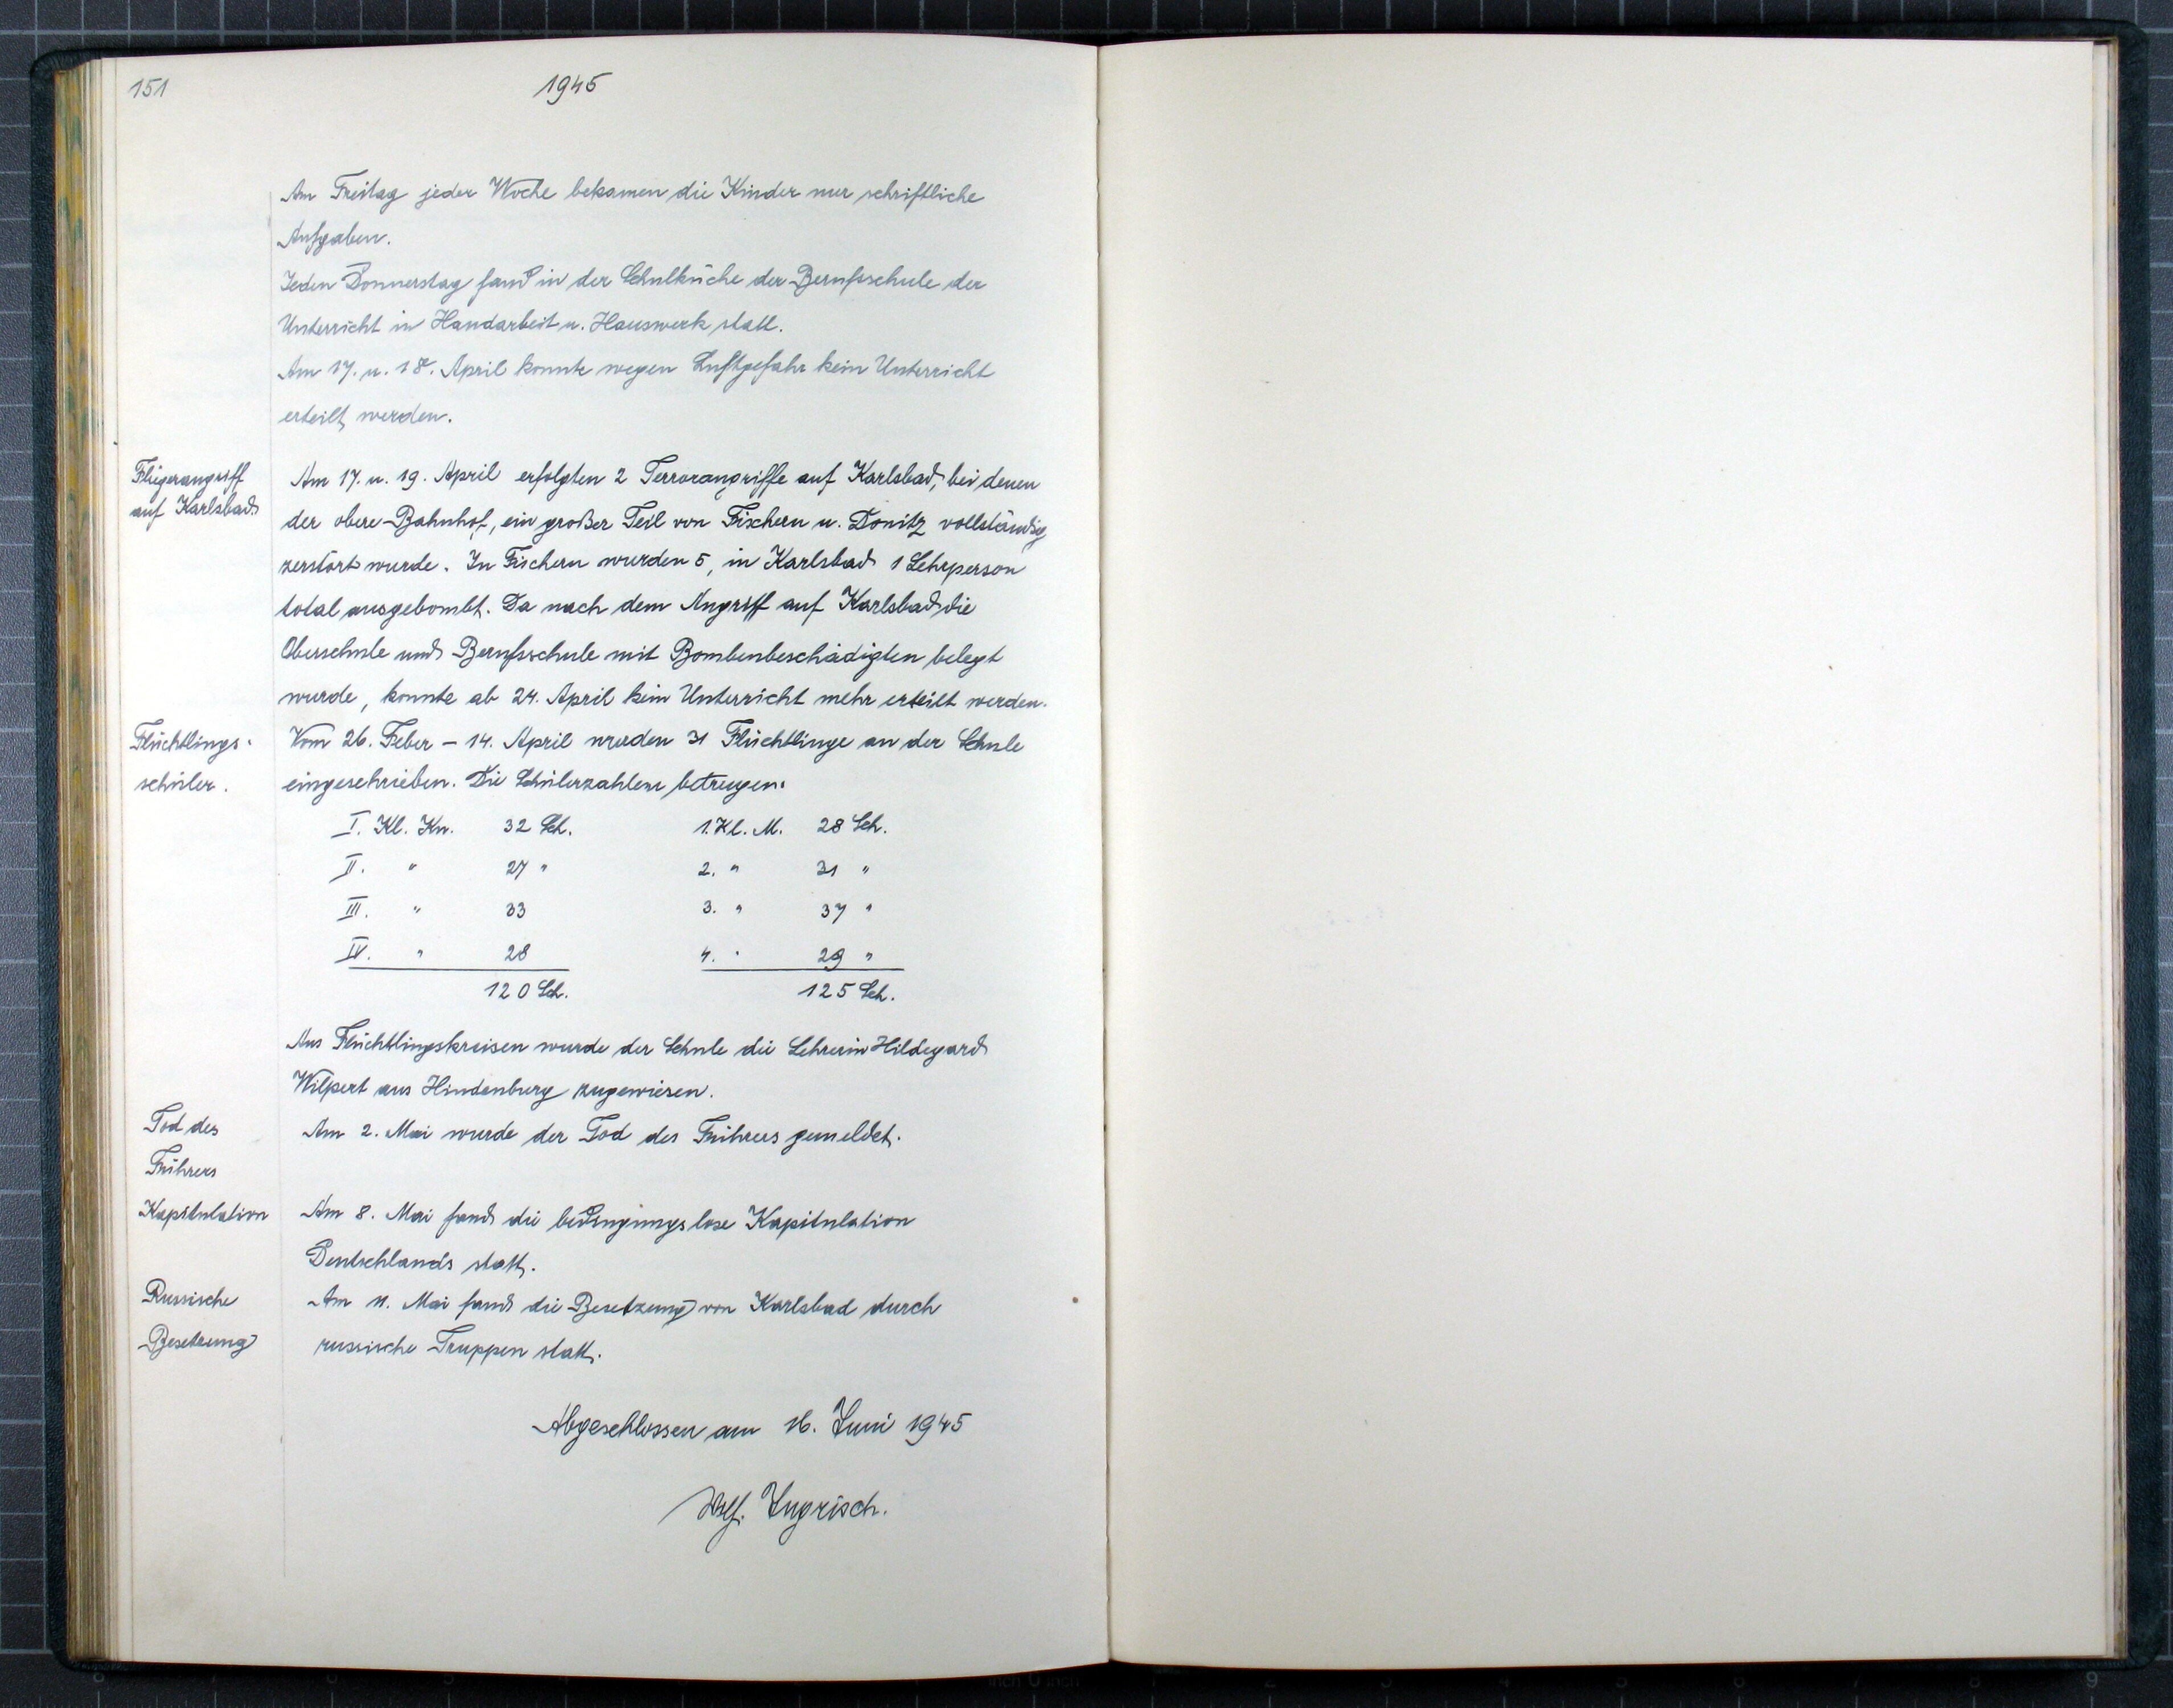 151
1945
Am Freitag jeder Woche bekamen die Kinder nur schriftliche
Aufgaben.
Jeden Donnerstag fand in der Schulküche der Berufsschule der
Unterricht in Handarbeit u. Hauswerk statt.
Am 17. u. 18. April konnte wegen Luftgefahr kein Unterricht
erteilt werden.
Fliegerangriff
auf Karlsbad
Am 17. u. 19. April erfolgten 2 Terrorangriffe auf Karlsbad, bei denen
der obere Bahnhof, ein großer Teil von Fischern u. Donitz vollständig
zerstört wurde. In Fischern wurden 5, in Karlsbad 1 Lehrperson
total ausgebombt. Da nach dem Angriff auf Karlsbad die
Oberschule und Berufsschule mit Bombenbeschädigten belegt
wurde, konnte ab 24. April kein Unterricht mehr erteilt werden.
Flüchtlings-
schüler.
Vom 26. Feber – 14. April wurden 31 Flüchtlinge an der Schule
eingeschrieben. Die Schülerzahlen betrugen:
I. Kl. Kn. 32 Sch. 1. Kl. M. 28 Sch.
II. " 27 " 2. " 31 "
III. " 33 3. " 37 "
IV. " 28 4. " 29 "
120 Sch. 125 Sch.
Aus Flüchtlingskreisen wurde der Schule die Lehrerin Hildegard
Wilpert aus Hindenburg zugewiesen.
Tod des
Führers
Am 2. Mai wurde der Tod des Führers gemeldet.
Kapitulation
Am 8. Mai fand die bedingungslose Kapitulation
Deutschlands statt.
Russische
Besetzung
Am 11. Mai fand die Besetzung von Karlsbad durch
russische Truppen statt.
Abgeschlossen am 16. Juni 1945
Ingrisch.